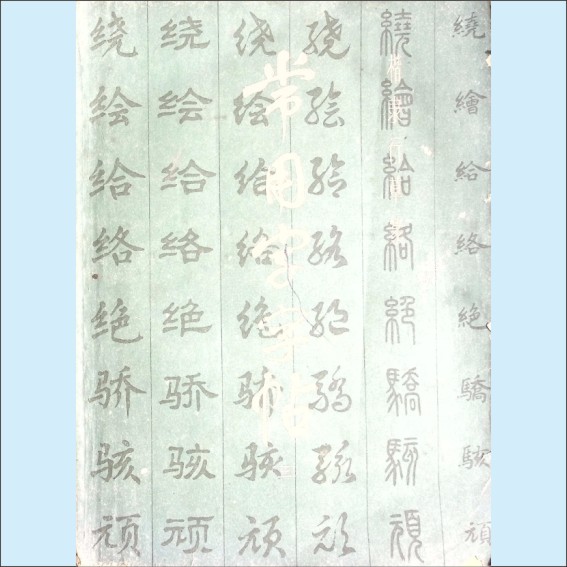 常用字字帖
绕 绕 绕 绕 繞 繞
绘 绘 绘 绘 繪 繪
给 给 给 给 給 給
络 络 络 络 絡 絡
绝 绝 绝 绝 絕 絶
骄 骄 骄 骄 驕 驕
骇 骇 骇 骇 駭 駭
顽 顽 顽 顽 頑 頑